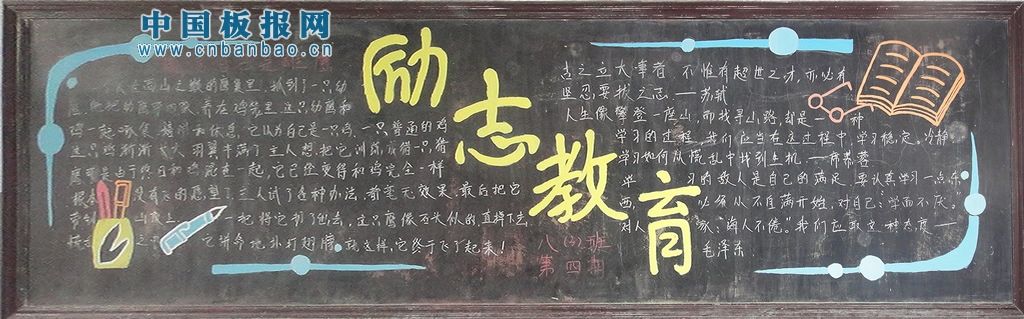 中国板报网
www.cnbanbao.cn
励志教育
一个人在高山之巅的鹰巢里,抓到了一只幼
鹰,他把幼鹰带回家,养在鸡笼里,这只幼鹰和
鸡一起啄食、嬉闹和休息,它以为自己是一只鸡,一只普通的鸡
这只鸡渐渐长大,羽翼丰满了,主人想把它训练成猎只,猎
鹰可是由于终日和鸡混在一起,它已经变得和鸡完全一样
根本没有飞的愿望了,主人试了各种办法,都毫无效果,最后把它
带到山顶上 一把将它扔了出去,这只鹰像石头似的直掉下去
之 它拼命地扑打翅膀,就这样,它终于飞了起来!
八(2)班
第四期
古之立大事者 不惟有超世之才,亦必有
坚忍不拔之志 —苏轼
人生像攀登一座山,而找寻山路,却是一种
学习的过程,我们应当在这过程中,学习稳定、冷静
学习如何从慌乱中找到生机 —席慕蓉
学习的敌人是自己的满足,要认真学习一点东
西 必须从不自满开始,对自己:学而不厌,
对人家:诲人不倦。我们应取这种态度—
毛泽东